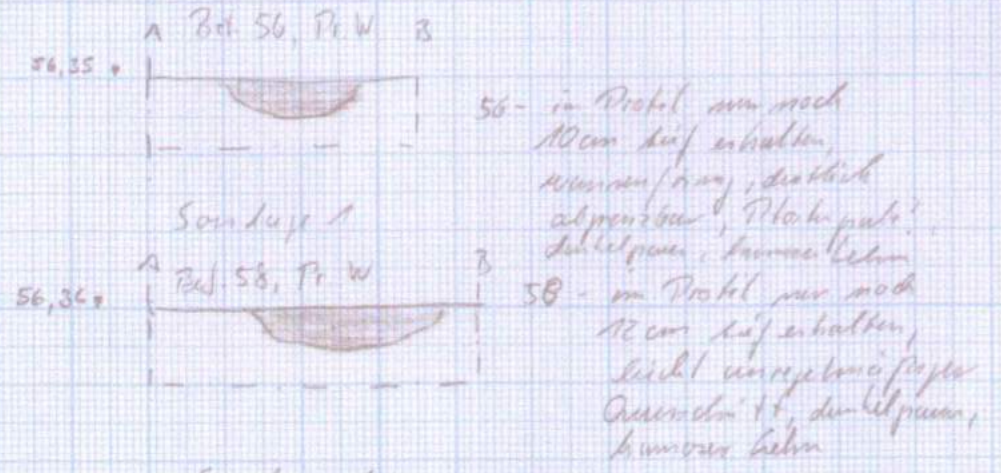 A Bef. 56, Pr. W B
56,35
56 - im Profil nur noch
10 cm tief erhalten,
wannenförmig, deutlich
abgrenzbar, Pfostengrube?,
dunkelgrauer, humoser Lehm
Sondage 1
A Bef. 58, Pr. W B
56,36
58 - im Profil nur noch
12 cm tief erhalten,
leicht unregelmäßiger
Querschnitt, dunkelgrauer,
humoser Lehm